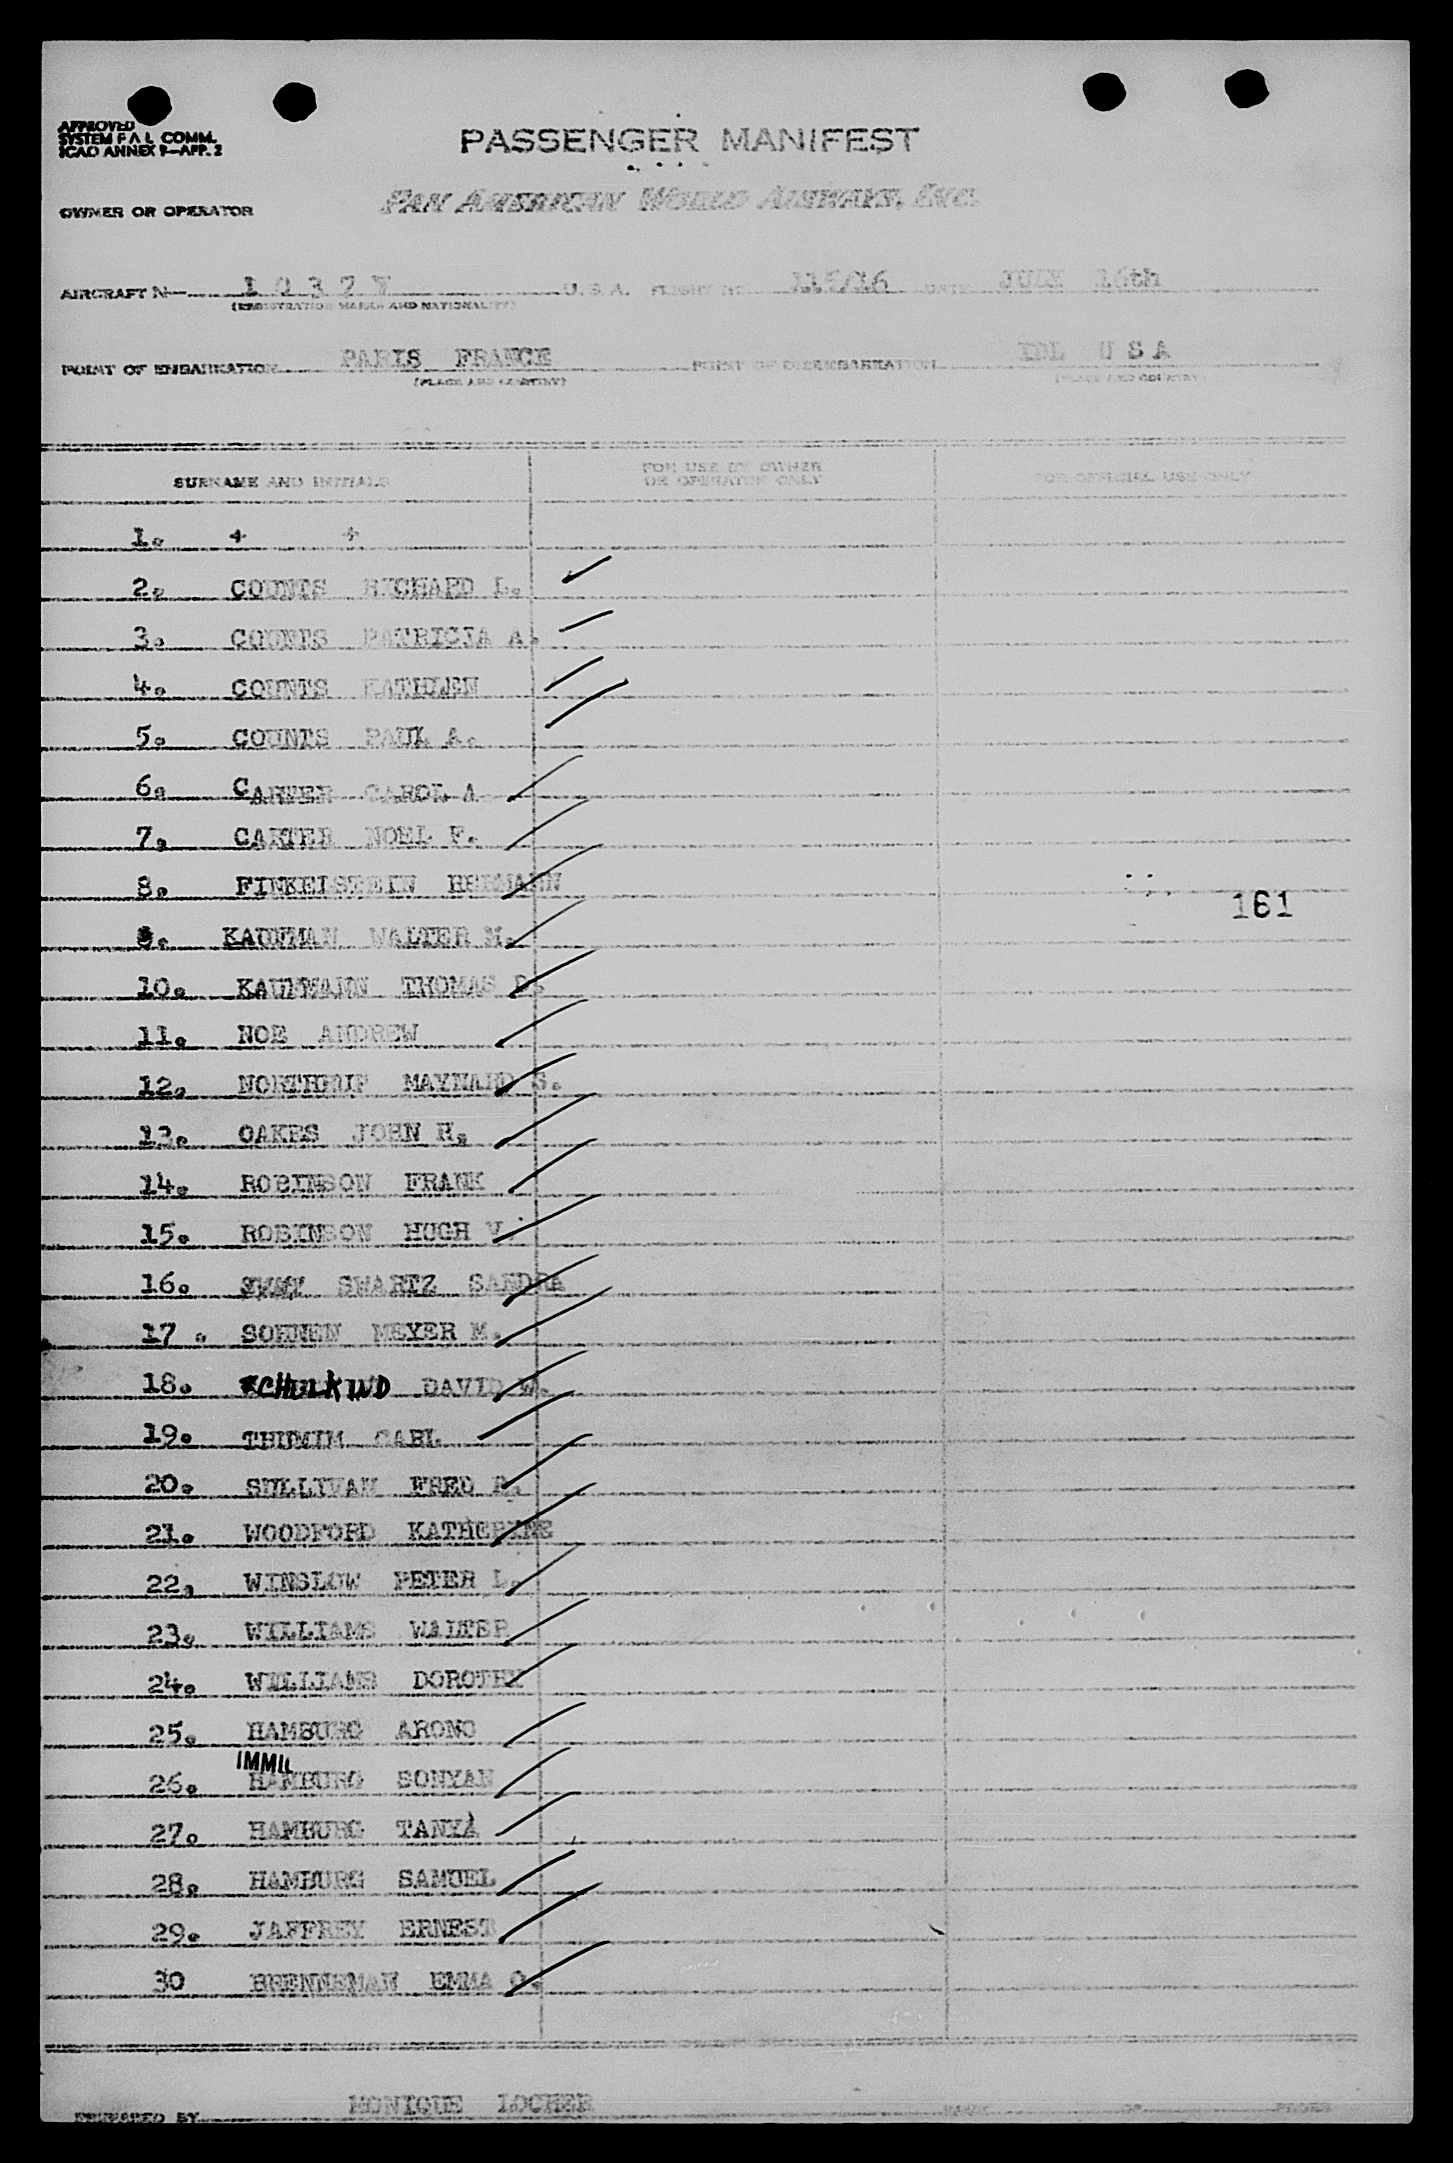 APPROVED
SYSTEM F A L COMM.
ICAO ANNEX 9—APP. 2
PASSENGER MANIFEST
PAN AMERICAN WORLD AIRWAYS, INC.
OWNER OR OPERATOR
AIRCRAFT N— 1 0 3 7 V U. S. A. FLIGHT NO 115/16 DATE JULY 16th
(REGISTRATION MARKS AND NATIONALITY)
POINT OF EMBARKATION PARIS FRANCE POINT OF DISEMBARKATION IDL U S A
(PLACE AND COUNTRY) (PLACE AND COUNTRY)
SURNAME AND INITIALS FOR USE BY OWNER OR OPERATOR ONLY FOR OFFICIAL USE ONLY
1. + +
2. COUNTS RICHARD L.
3. COUNTS PATRICIA A.
4. COUNTS KATHLEN
5. COUNTS PAUL A.
6. CARTER CAROL A
7. CARTER NOEL F.
8. FINKELSTEIN HERMANN
161
9. KAUFMAN WALTER M.
10. KAUFMANN THOMAS D.
11. NOE ANDREW
12. NORTHRUP MAYNARD S.
13. OAKES JOHN H.
14. ROBINSON FRANK
15. ROBINSON HUGH V.
16. SWARTZ SANDRA
17. SOHNEN MEYER M.
18. SCHULKIND DAVID W.
19. THUMIM CARL
20. SULLIVAN FRED R.
21. WOODFORD KATHERINE
22. WINSLOW PETER L.
23. WILLIAMS WALTER
24. WILLIAMS DOROTHY
25. HAMBURG ARONO
IMMIL
26. HAMBURG SONYAN
27. HAMBURG TANYA
28. HAMBURG SAMUEL
29. JAFFREY ERNEST
30 BRENNEMAN EMMA O.
PREPARED BY MONIQUE LOCHER OF PAGES